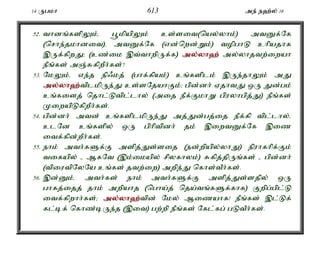 14 ரூபமா 613 அந் நஹ்ல் 16
52. வானங்களிலும், பூமியிலும் உள்ளவை(யெல்லாம்) அவனுக்கே
(சொந்தமானவை). அவனுக்கே (என்றென்றும்) வழிபாடு உரியதாக
இருக்கிறது; (உண்மை இவ்வாறிருக்க) அல்லாஹ் அல்லாதவற்றையா
நீங்கள் அஞ்சுகிறீர்கள்?
53. மேலும், எந்த நிஃமத் (பாக்கியம்) உங்களிடம் இருந்தாலும் அது
அல்லாஹ்விடமிருந்து உள்ளதேயாகும்; பின்னர் ஏதாவது ஒரு துன்பம்
உங்களைத் தொட்டுவிட்டால் (அதை நீக்குமாறு பிரலாபித்து) நீங்கள்
முறையிடுகிறீர்கள்.
54. பின்னர் அவன் உங்களிடமிருந்து அத்துன்பத்தை நீக்கி விட்டால்,
உடனே உங்களில் ஒரு பிரிவினர் தம் இறைவனுக்கே இணை
வைக்கின்றீர்கள்.
55. நாம் அவர்களுக்கு அளித்துள்ளதை (நன்றியில்லாது) நிராகரிக்கும்
வகையில் , ஆகவே (இம்மையில் சிலகாலம்) சுகித்திருங்கள் , பின்னர்
(விரைவிலேயே உங்கள் தவற்றை) அறிந்து கொள்வீர்கள்.
56. இன்னும், அவர்கள் நாம் அவர்களுக்கு அளித்துள்ளதில் ஒரு
பாகத்தைத் தாம் அறியாத (பொய்த் தெய்வங்களுக்காக) குறிப்பிட்டு
வைக்கிறார்கள்; அல்லாஹ்வின் மேல் ஆணையாக! நீங்கள் இட்டுக்
கட்டிக் கொண்டிருந்த (இவை) பற்றி நீங்கள் கேட்கப் படுவீர்கள்.